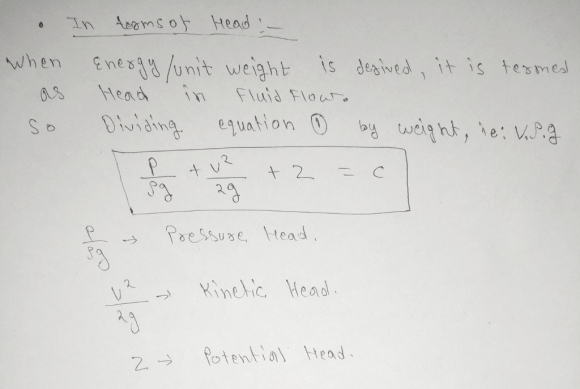 • In terms of Head :-
When Energy/unit weight is desired, it is termed
as Head in Fluid Flow.
So Dividing equation ① by weight, ie: V.ρ.g
P/ρg + v²/2g + Z = C
P/ρg → Pressure Head.
v²/2g → Kinetic Head.
Z → Potential Head.